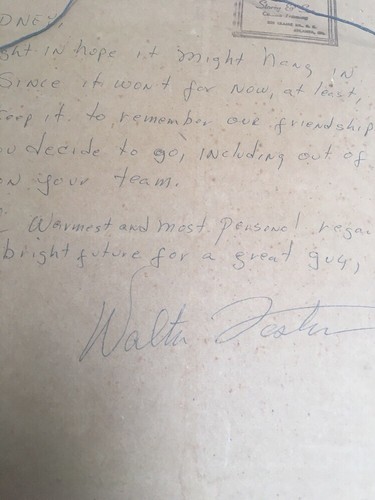 DNEY,
ght in hope it might hang in
Since it won't for now, at least,
keep it to remember our friendship
ou decide to go, including out of
on your team.
Warmest and most personal rega
bright future for a great guy,
Walter